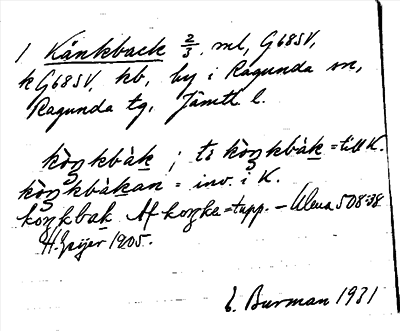 1 Kånkback 2/3 ml, G68SV,
k G68SV, kb, by i Ragunda sn,
Ragunda tg, Jämtl l.
kòŋkbàk ; ts kòŋkbàk = till K.
kòŋkbàkan = inv. i K.
koŋkbak Af koŋke = tupp. - 508-38
H. Geijer 1905.
E. Burman 1931